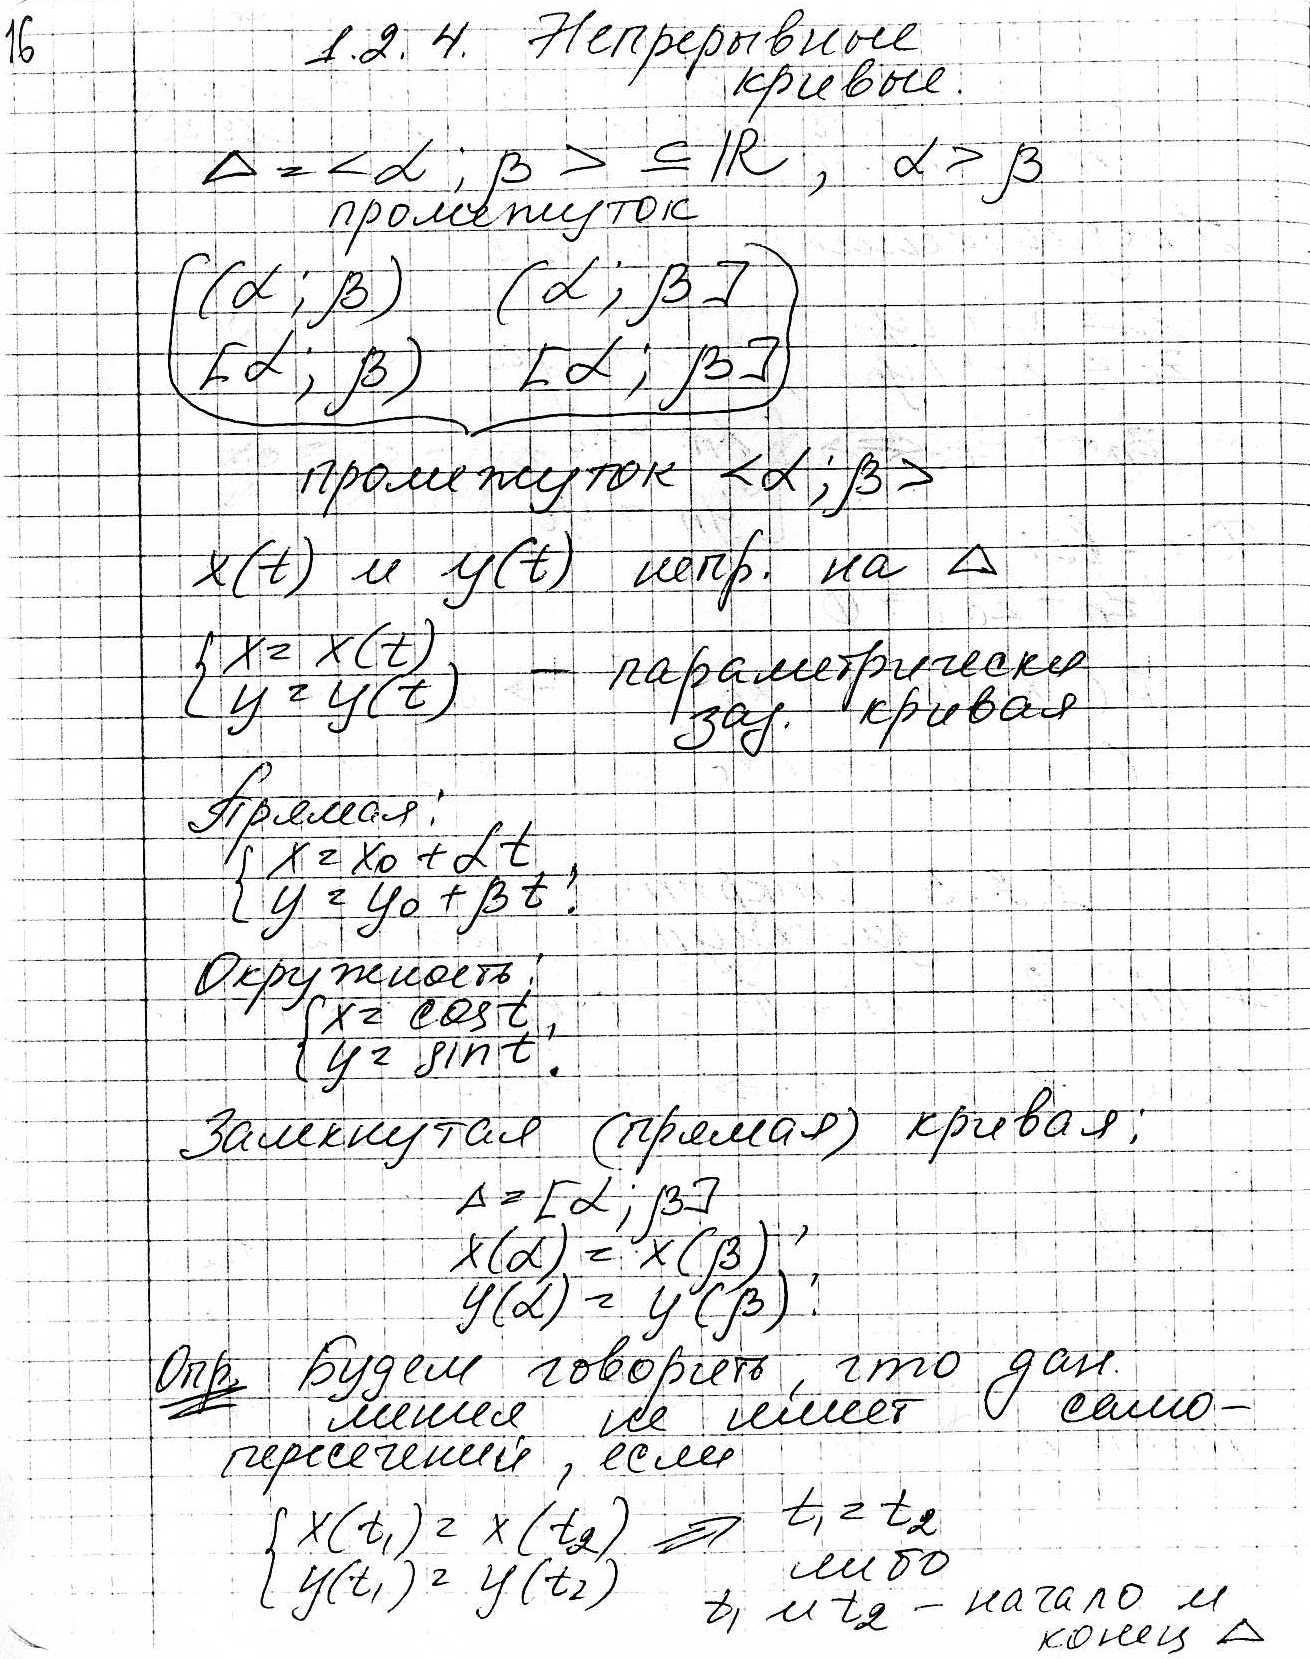 16
1.2.4. Непрерывные
кривые.
Δ = <α; β> ⊆ ℝ, α > β
промежуток
(α; β) (α; β]
[α; β) [α; β]
промежуток <α; β>
x(t) и y(t) непр. на Δ
{ x = x(t)
y = y(t) – параметрически
зад. кривая
Прямая:
{ x = x₀ + αt,
y = y₀ + βt.
Окружность:
{ x = cos t,
y = sin t.
Замкнутая (прямая) кривая:
Δ = [α; β]
x(α) = x(β),
y(α) = y(β).
Опр. Будем говорить, что дан.
линия не имеет само-
пересечений, если
{ x(t₁) = x(t₂) ⇒ t₁ = t₂
y(t₁) = y(t₂) либо
t₁ и t₂ – начало и
конец Δ